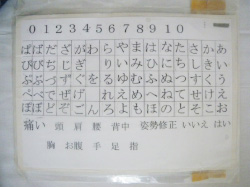 0 1 2 3 4 5 6 7 8 9 10
ぱ ば だ ざ が わ ら や ま は な た さ か あ
ぴ び ぢ じ ぎ り い み ひ に ち し き い
ぷ ぶ づ ず ぐ を る ゆ む ふ ぬ つ す く う
ぺ べ で ぜ げ れ え め へ ね て せ け え
ぽ ぼ ど ぞ ご ん ろ よ も ほ の と そ こ お
痛い 頭 肩 腰 背中 姿勢修正 いいえ はい
胸 お腹 手 足 指